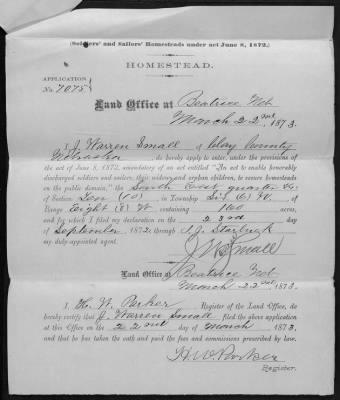 (Soldiers' and Sailors' Homesteads under act June 8, 1872.)
HOMESTEAD.
APPLICATION
No. 7075
Land Office at Beatrice Neb
March 22nd, 1873.
I, J. Warren Small of Clay County
Nebraska do hereby apply to enter, under the provisions of
the act of June 8, 1872, amendatory of an act entitled "An act to enable honorably
discharged soldiers and sailors, their widows and orphan children, to secure homesteads
on the public domain," the South East quarter
of Section Ten (10) in Township Six (6) N. of
Range Eight (8) W. containing 160 acres,
and for which I filed my declaration on the 23rd day of
September, 1872, through
my duly appointed agent.
J W Small
Land Office at Beatrice Neb
March 22nd 1873.
I, H. W. Parker Register of the Land Office, do
hereby certify that J. Warren Small filed the above application
at this Office on the 22nd day of March 1873,
and that he has taken the oath and paid the fees and commissions prescribed by law.
H. W. Parker
Register.